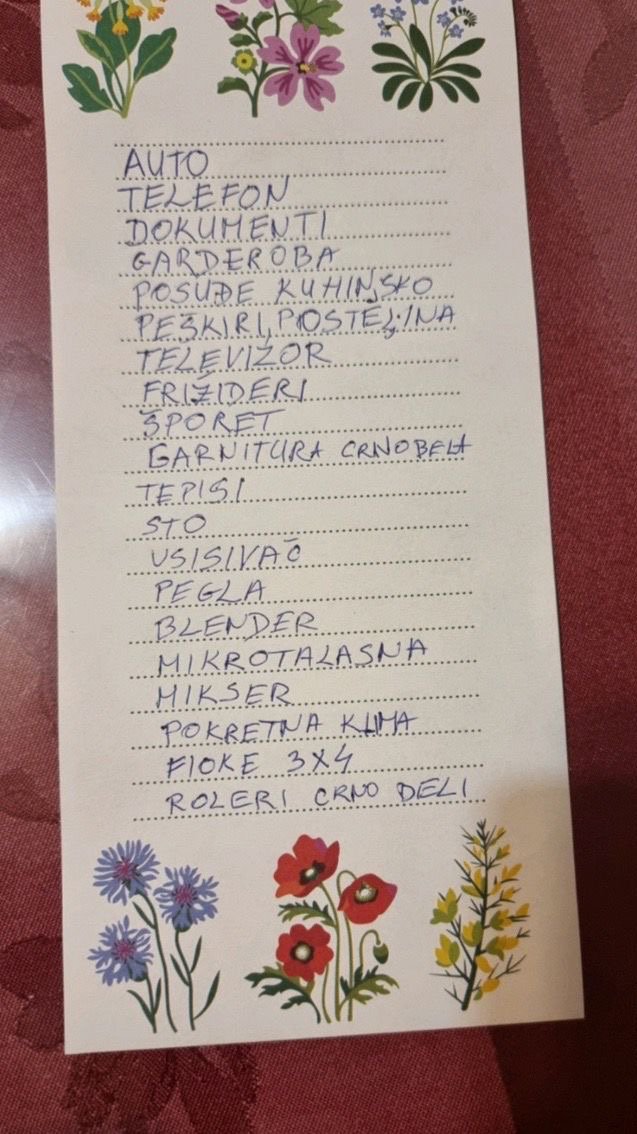 AUTO
TELEFON
DOKUMENTI
GARDEROBA
POSUĐE KUHINJSKO
PEŠKIRI, POSTELJINA
TELEVIZOR
FRIŽIDERI
ŠPORET
GARNITURA CRNOBELA
TEPISI
STO
USISIVAČ
PEGLA
BLENDER
MIKROTALASNA
MIKSER
POKRETNA KLIMA
FIOKE 3X4
ROLERI CRNO BELI